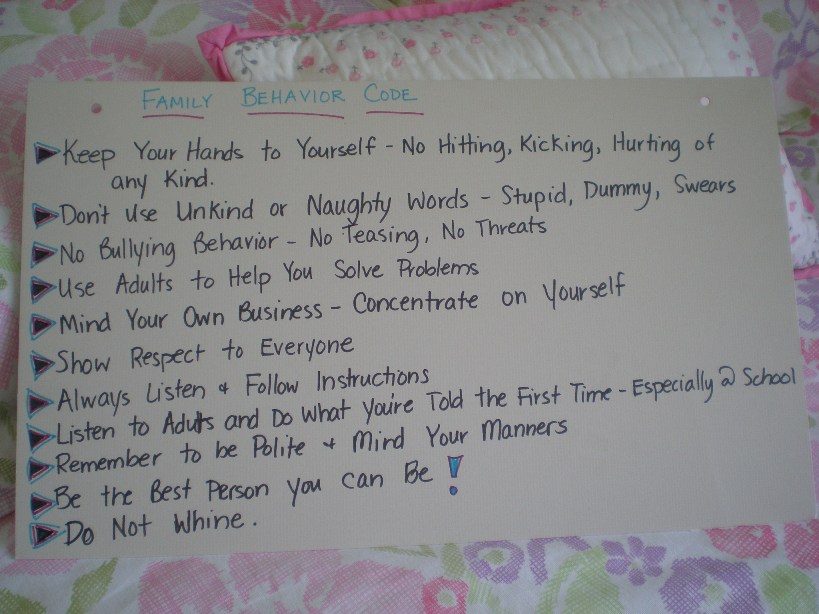 FAMILY BEHAVIOR CODE
Keep Your Hands to Yourself - No Hitting, Kicking, Hurting of
any Kind.
Don't Use Unkind or Naughty Words - Stupid, Dummy, Swears
No Bullying Behavior - No Teasing, No Threats
Use Adults to Help You Solve Problems
Mind Your Own Business - Concentrate on Yourself
Show Respect to Everyone
Always Listen & Follow Instructions
Listen to Adults and Do What You're Told the First Time - Especially @ School
Remember to be Polite & Mind Your Manners
Be the Best Person you can Be!
Do Not Whine.